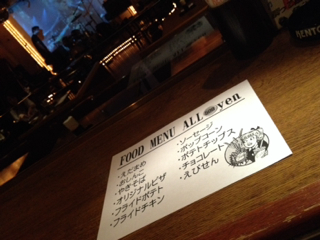 FOOD MENU ALL yen
・えだまめ
・おしんこ
・やきそば
・オリジナルピザ
・フライドポテト
・フライドチキン
・ソーセージ
・ポップコーン
・ポテトチップス
・チョコレート
・えびせん